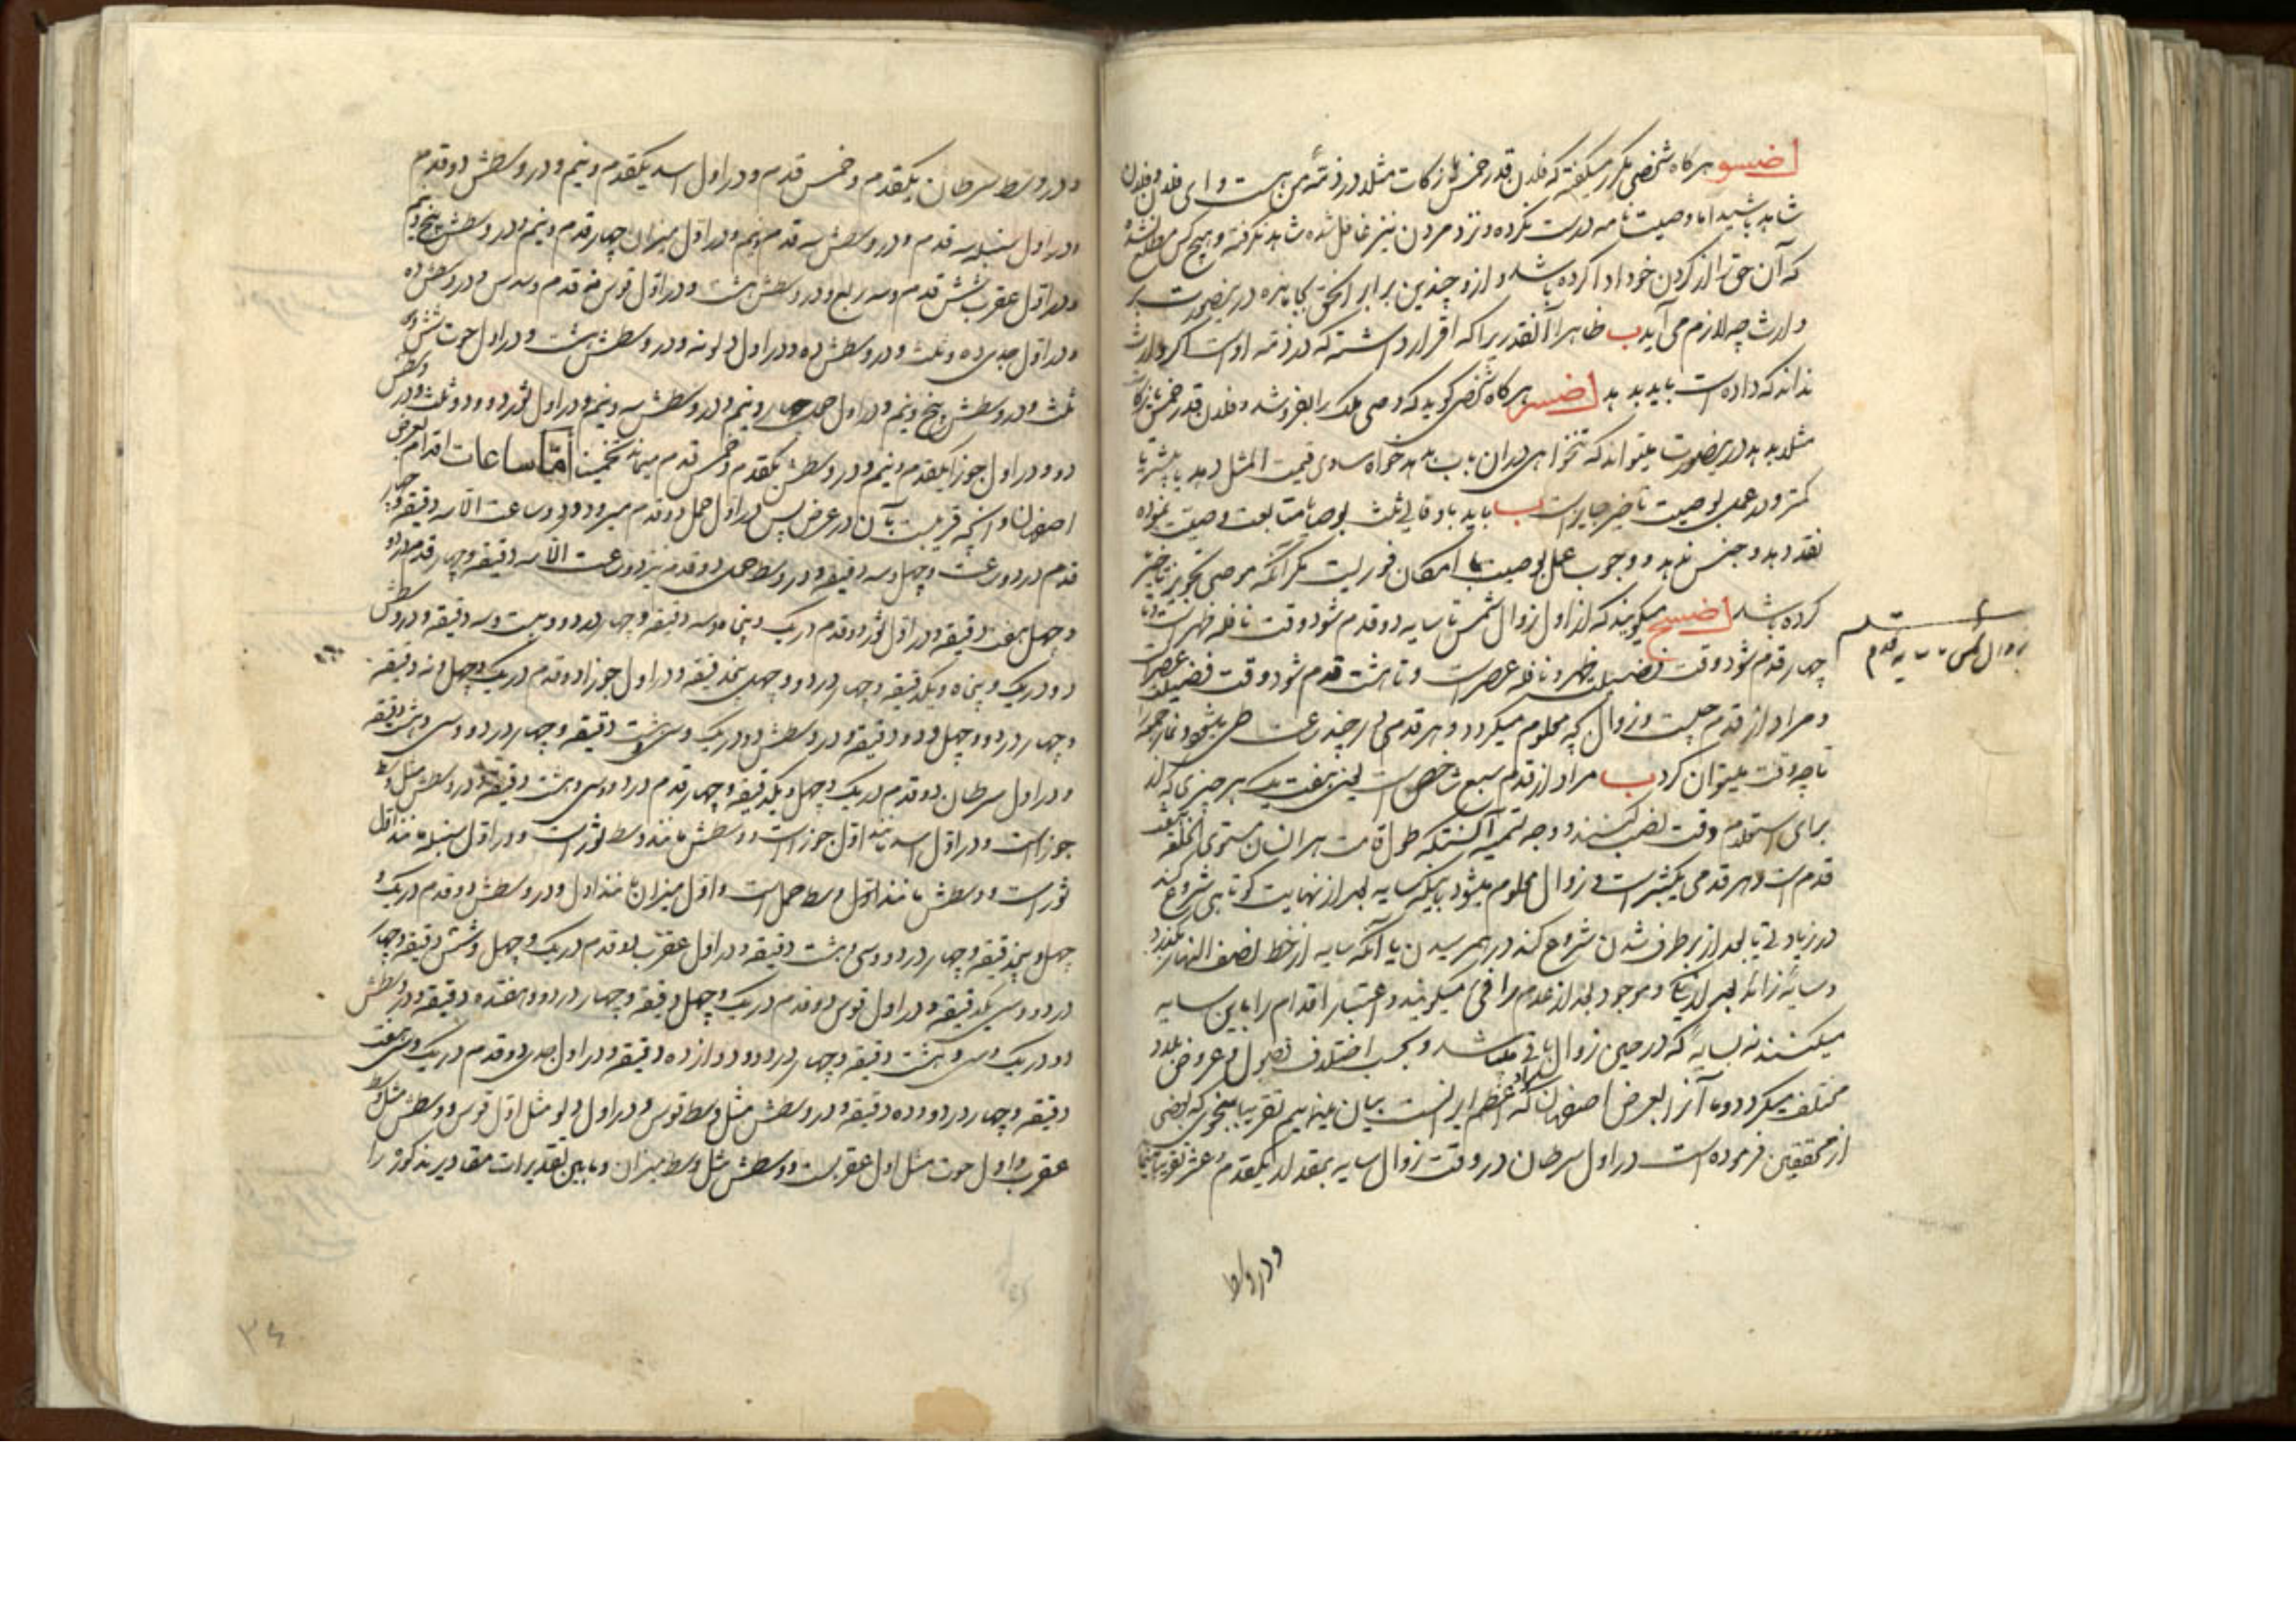 هرگاه شخصی مکرر میگفته که فلان قدر خمس یا زکات مثلا در ذمّه من هست و ای فلان و فلان
شاهد باشید اما وصیت نامه درست نکرده و نزد مردن نیز غافل شده شاهد نگرفته و هیچ کس مطلع نشده
که آن حق را از گردن خود ادا کرده باشد و ازو چندین برابر آنحق بجا مانده درینصورت بر
وارث چه لازم می آید ب ظاهرا آنقدریرا که اقرار داشته که در ذمه اوست اگر وارث
نداند که داده است باید بدهد هرگاه شخصی گوید که وصی ملک را بفروشد و فلان قدر خمس یا زکات
مثلا بدهد درینصورت میتواند که تنخواهی در آن باب بدهد خواه مساوی قیمت المثل بدهد یا بیشتر یا
کمتر و در عمل بوصیت تاخیر جایز است ب باید باوفای ثلث بوصایا متابعت وصیت نموده
نقد دهد و جنس ندهد و وجوب عمل بوصیت با امکان فوریست مگر آنکه موصی تجویز تاخیر
کرده باشد میگویند که از اول زوال شمس تا سایه دو قدم شود وقت نافله ظهر است و تا
چهار قدم شود وقت فضیلت ظهر و نافله عصر است و تا هشت قدم شود وقت فضیلت عصر است
و مراد از قدم چیست و زوال چه معلوم میگردد و هر قدمی در چند ساعت طی میشود و نماز جمعه را
تا چه وقت میتوان کرد ب مراد از قدم سبع شاخص است یعنی هفت یک هر چیزی که آنرا
برای استعلام وقت نصب کنند و وجه تسمیه آنستکه طول قامت هر انسان مستوی الخلقه هفت
قدم است و هر قدمی یکشبر است و زوال معلوم میشود باینکه سایه بعد از نهایت کوتاهی شروع کند
در زیادتی یا بعد از برطرف شدن شروع کند در بهم رسیدن یا آنکه سایه از خط نصف النهار بگذرد
و سایه زائد بعد از نقص و موجود بعد از عدم را فئ میگویند و اعتبار اقدام را باین سایه
میکنند نه بسایه که در حین زوال باقی میباشد و بحسب اختلاف فصول و عروض بلاد
مختلف میگردد و ما آنرا بعرض اصفهان که اعظم بلاد ایرانست بیان مینمائیم تقریبا بنحوی که بعضی
از محققین فرموده است در اول سرطان در وقت زوال سایه بمقدار یکقدم و عشر تقریبا
زوال شمس تا سایه قدم
و در وسط
و در وسط سرطان یکقدم و خمس قدم و در اول اسد یکقدم و نیم و در وسطش دو قدم
و در اول سنبله سه قدم و در وسطش سه قدم و نیم و در اول میزان چهار قدم و نیم و در وسطش پنج و نیم
و در اول عقرب شش قدم و سه ربع و در وسطش هشت و در اول قوس نه قدم و سدس و در وسطش ده
و در اول جدی ده و ثلث و در وسطش ده و در اول دلو نه و در وسطش هشت و در اول حوت شش و
ثلث و در وسطش پنج و نیم و در اول حمل چهار و نیم و در وسطش سه و نیم و در اول ثور دو و دو ثلث و در وسطش
دو و در اول جوزا یکقدم و نیم و در وسطش یکقدم و خمس قدم میماند تخمینا امّا ساعات اقدام بعرض
اصفهان و آنچه قریبست بآن در عرض پس در اول حمل دو قدم میرود در دو ساعت الا سه دقیقه و چهار
قدم در دو ساعت و چهل و سه دقیقه و در وسط حمل دو قدم نیز در دو ساعت الا سه دقیقه و چهار قدم در دو
و چهل و هفت دقیقه و در اول ثور دو قدم در یک و پنجاه و سه دقیقه و چهار در دو و بیست و سه دقیقه و در وسطش
دو در یک و پنجاه و یکدقیقه و چهار در دو و چهل و پنجدقیقه و در اول جوزا دو قدم در یک و چهل و نه دقیقه
و چهار در دو و چهل و دو دقیقه و در وسطش دو در یک و سی و هشت دقیقه و چهار در دو و سی و هشت دقیقه
و در اول سرطان دو قدم در یک و چهل و یکدقیقه و چهار قدم در دو و سی و هشت دقیقه و در وسطش مثل وسط
جوزا است و در اول اسد مانند اول جوزا است و وسطش مانند وسط ثور است و در اول سنبله مانند اول
ثور است و وسطش مانند وسط حمل است و اول میزان مانند اول و در وسطش دو قدم در یک و
چهل و پنجدقیقه و چهار در دو و سی و هشت دقیقه و در اول عقرب دو قدم در یک و چهل و شش دقیقه و چهار
در دو و سی و یکدقیقه و در اول قوس دو قدم در یک و چهل دقیقه و چهار در دو و هفده دقیقه و در وسطش
دو در یک و سی و هشت دقیقه و چهار در دو و دوازده دقیقه و در اول جدی دو قدم در یک و سی و هفت
دقیقه و چهار در دو و ده دقیقه و در وسطش مثل وسط قوس و در اول دلو مثل اول قوس و وسطش مثل وسط
عقرب و اول حوت مثل اول عقربست و وسطش مثل وسط میزان و مابین تقدیرات مقادیر مذکوره را
۳۴